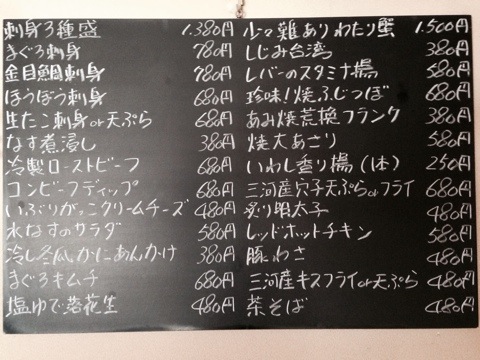 刺身3種盛 1.380円
まぐろ刺身 780円
金目鯛刺身 780円
ほうぼう刺身 680円
生たこ刺身or天ぷら 680円
なす煮浸し 380円
冷製ローストビーフ 680円
コンビーフディップ 680円
いぶりがっこクリームチーズ 480円
水なすのサラダ 580円
冷し冬瓜かにあんかけ 380円
まぐろキムチ 680円
塩ゆで落花生 480円
少々難ありわたり蟹 1.500円
しじみ台湾 380円
レバーのスタミナ揚 580円
珍味!焼ふじつぼ 680円
あみ焼荒挽フランク 380円
焼大あさり 580円
いわし香り揚(1本) 250円
三河産穴子天ぷらorフライ 680円
炙り明太子 480円
レッドホットチキン 580円
豚わさ 480円
三河産キスフライor天ぷら 480円
茶そば 480円